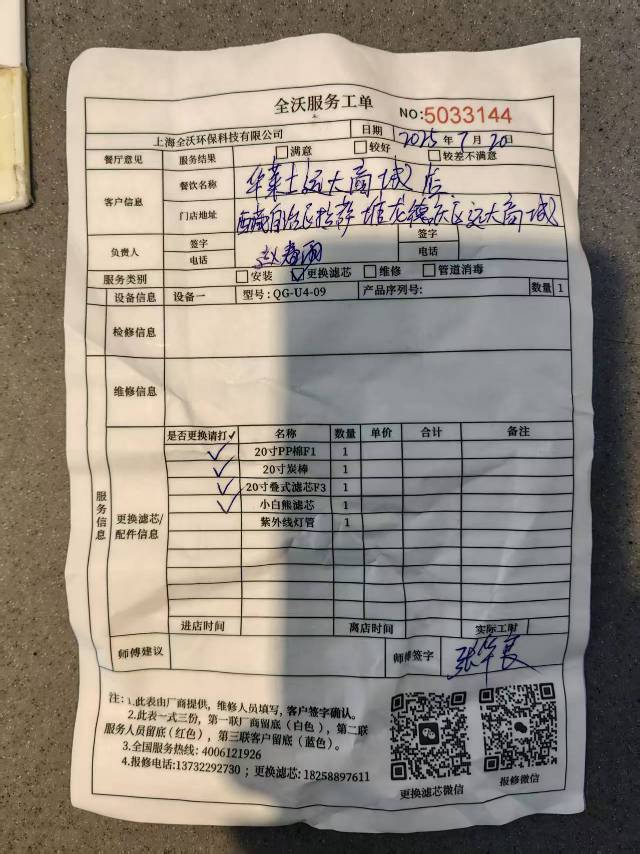 全沃服务工单
NO:5033144
上海全沃环保科技有限公司 日期 2025年7月20日
餐厅意见 服务结果 □满意 □较好 □较差不满意
客户信息 餐饮名称 华莱士远大商城店
门店地址 西藏自治区拉萨 堆龙德庆区远大商城
负责人 签字 赵春雨 签字
电话 电话
服务类别 □安装 ☑更换滤芯 □维修 □管道消毒
设备信息 设备一 型号:QG-U4-09 产品序列号: 数量 1
检修信息
维修信息
服务信息
更换滤芯/配件信息
是否更换请打√ 名称 数量 单价 合计 备注
✓ 20寸PP棉F1 1
✓ 20寸炭棒 1
✓ 20寸叠式滤芯F3 1
✓ 小白熊滤芯 1
紫外线灯管 1
进店时间 离店时间 实际工时
师傅建议 师傅签字 张华良
注:1.此表由厂商提供，维修人员填写，客户签字确认。
2.此表一式三份，第一联厂商留底(白色)，第二联
服务人员留底(红色)，第三联客户留底(蓝色)。
3.全国服务热线:4006121926
4.报修电话:13732292730;更换滤芯:18258897611
更换滤芯微信 报修微信